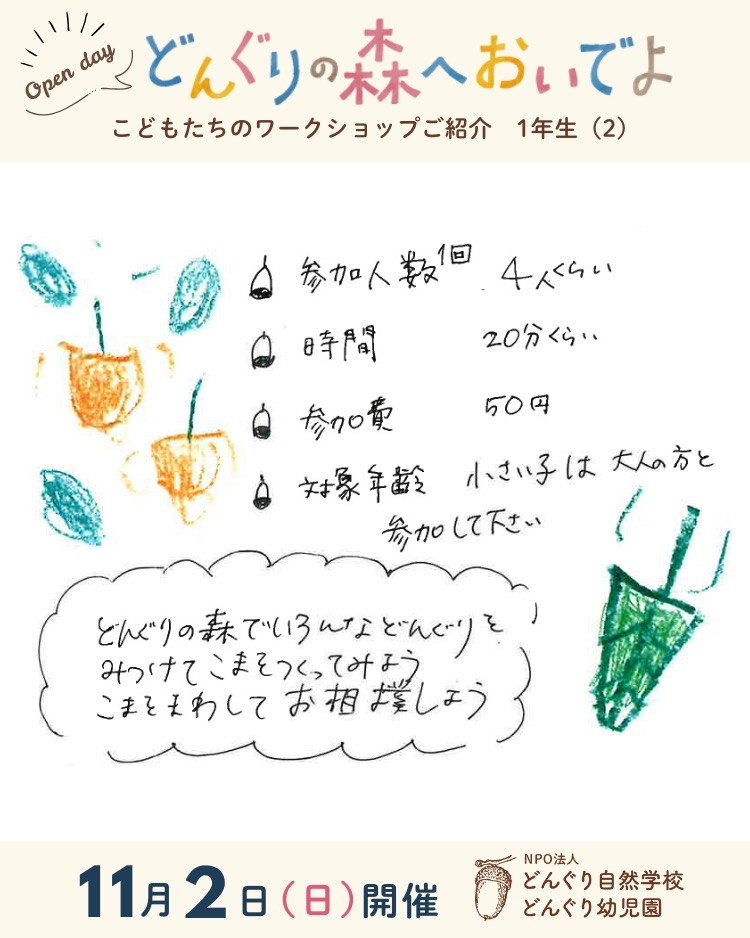 Open day
どんぐりの森へおいでよ
こどもたちのワークショップご紹介　1年生（2）
参加人数1回　4人くらい
時間　20分くらい
参加費　50円
対象年齢　小さい子は大人の方と
参加して下さい
どんぐりの森でいろんなどんぐりを
みつけてこまをつくってみよう
こまをまわしてお相撲しよう
11月2日（日）開催
NPO法人
どんぐり自然学校
どんぐり幼児園